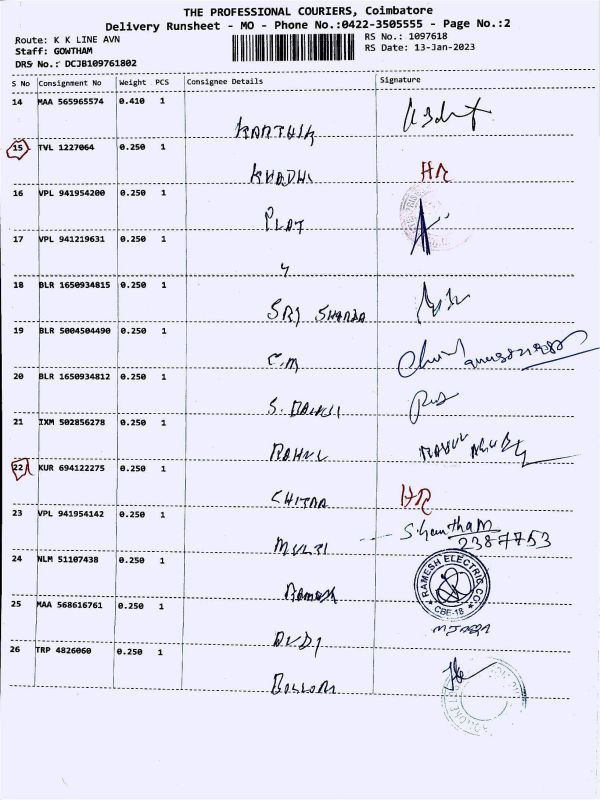 THE PROFESSIONAL COURIERS, Coimbatore
Delivery Runsheet - MO - Phone No.:0422-3505555 - Page No.:2
Route: K K LINE AVN
RS No.: 1097618
Staff: GOWTHAM
RS Date: 13-Jan-2023
DRS No.: DCJB109761802
S No Consignment No Weight PCS Consignee Details Signature
14 MAA 565965574 0.410 1
KARTHIK
15 TVL 1227064 0.250 1
KHADHI HR
16 VPL 941954200 0.250 1
PLAT
17 VPL 941219631 0.250 1
18 BLR 1650934815 0.250 1
SRI SHARDA
19 BLR 5004504490 0.250 1
C.M
20 BLR 1650934812 0.250 1
21 IXM 502856278 0.250 1
RAHUL
22 KUR 694122275 0.250 1
CHITRA HR
23 VPL 941954142 0.250 1
MULTI 2387753
24 NLM 51107438 0.250 1
Ramesh RAMESH ELECTRIC CO. CBE-18
25 MAA 568616761 0.250 1
26 TRP 4826060 0.250 1